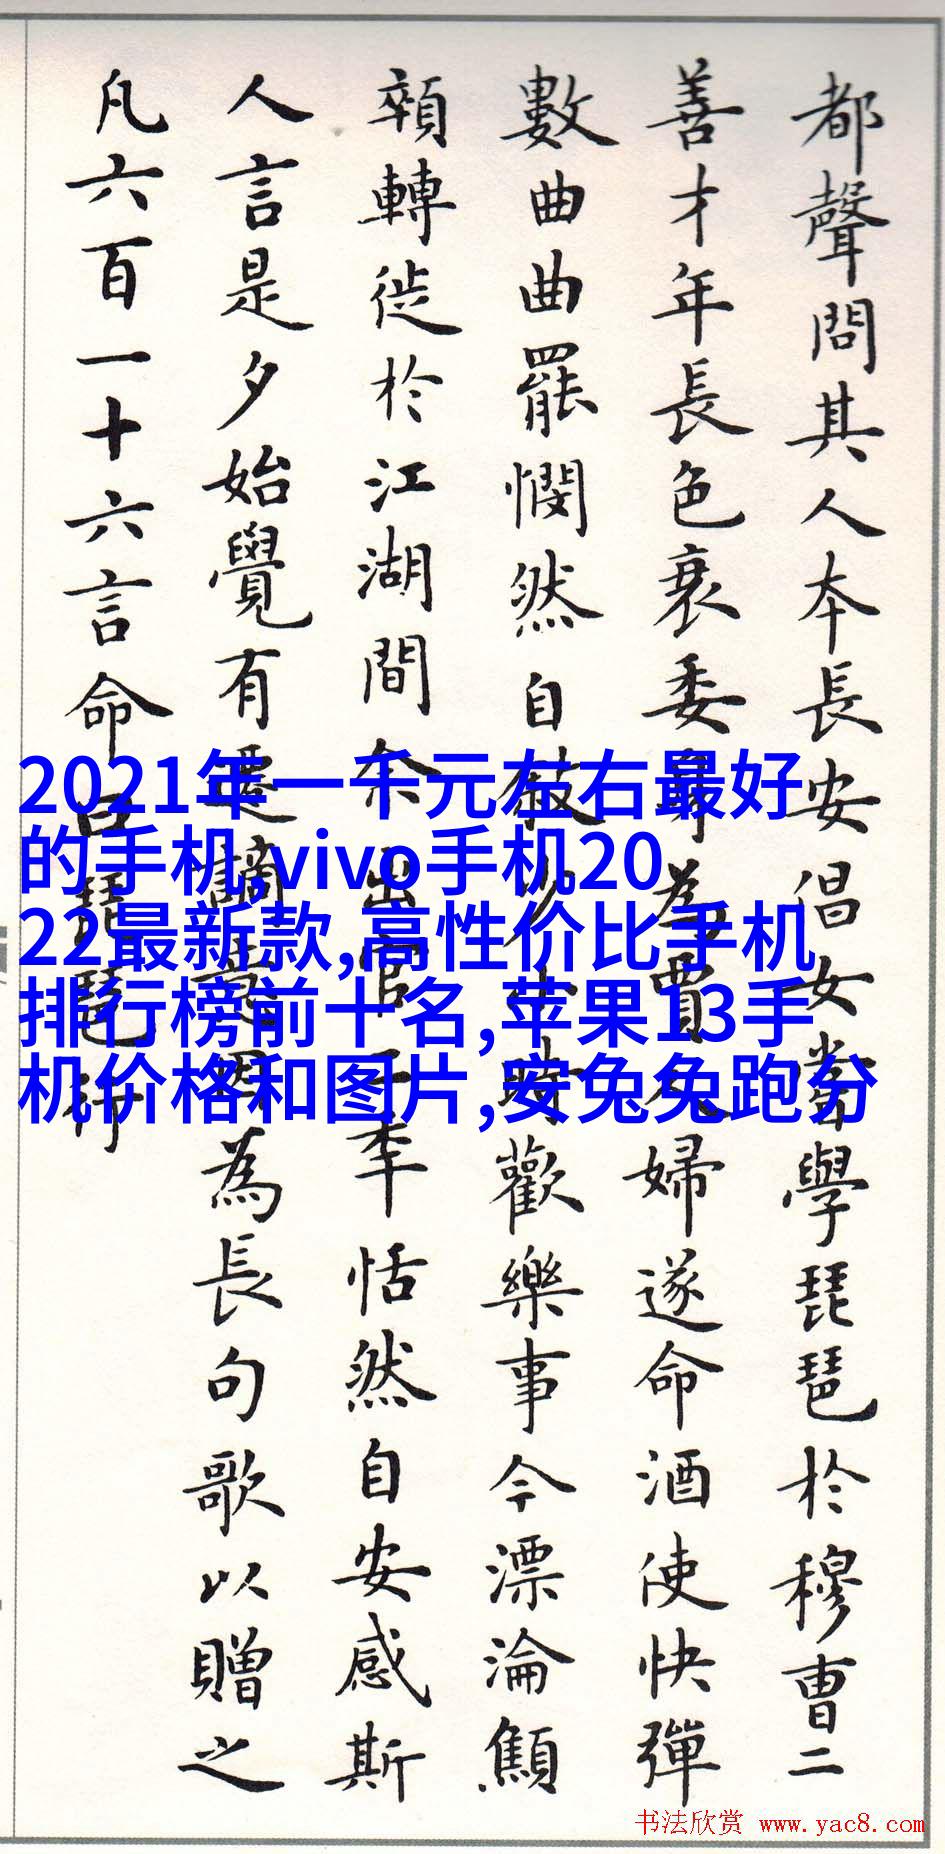 都聲問其人本長安倡女嘗學琵琶於穆曹二
善才年長色衰委身為賈人婦遂命酒使快彈
數曲曲罷憫然自敘少小時歡樂事今漂淪顦
顇轉徙於江湖間余出官二年恬然自安感斯
人言是夕始覺有遷謫意因為長句歌以贈之
凡六百一十六言命曰琵琶行
2021年一千元左右最好
的手机,vivo手机20
22最新款,高性价比手机
排行榜前十名,苹果13手
机价格和图片,安兔兔跑分
书法欣赏 www.yac8.com